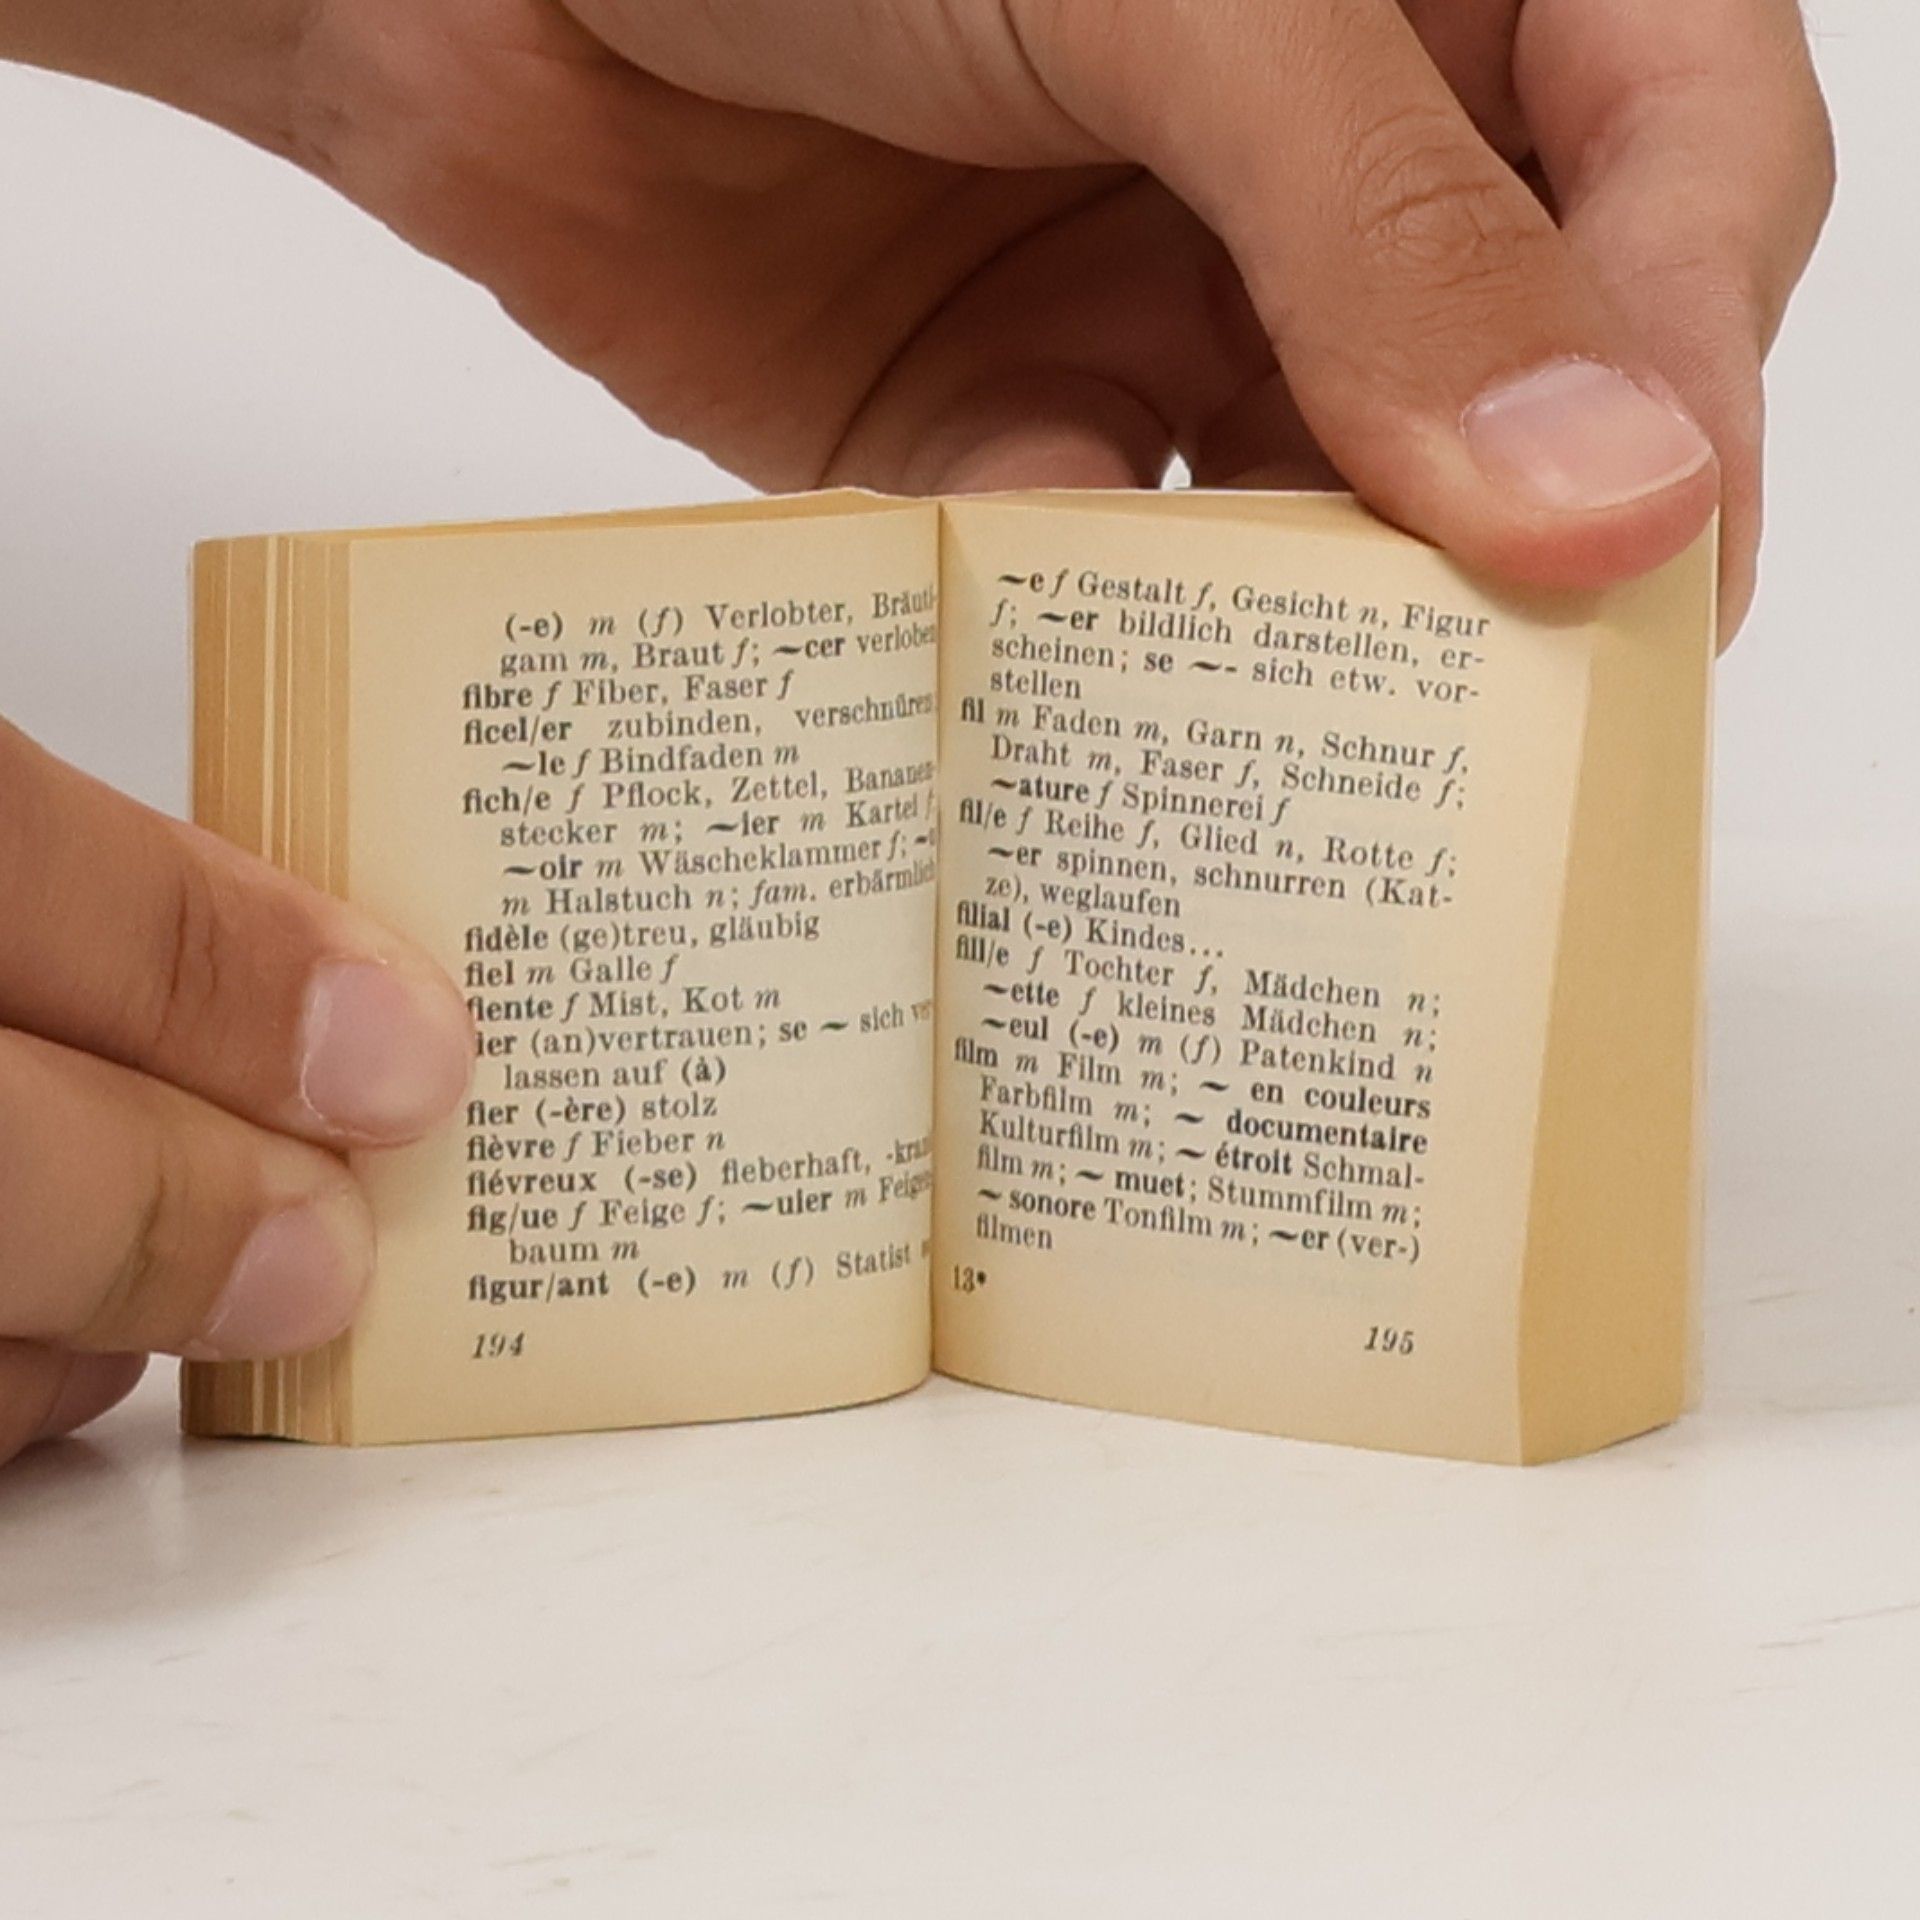 (-e) m (f) Verlobter, Bräuti-
gam m, Braut f; ~cer verloben
fibre f Fiber, Faser f
ficel/er zubinden, verschnüren;
~le f Bindfaden m
fich/e f Pflock, Zettel, Bananen-
stecker m; ~ier m Kartei f;
~oir m Wäscheklammer f;
m Halstuch n; fam. erbärmlich
fidèle (ge)treu, gläubig
fiel m Galle f
fiente f Mist, Kot m
fier (an)vertrauen; se ~ sich
lassen auf (à)
fier (-ère) stolz
fièvre f Fieber n
fiévreux (-se) fieberhaft,
fig/ue f Feige f; ~uier m Feigen
baum m
figur/ant (-e) m (f) Statist
194
~e f Gestalt f, Gesicht n, Figur
f; ~er bildlich darstellen, er-
scheinen; se ~- sich etw. vor-
stellen
fil m Faden m, Garn n, Schnur f,
Draht m, Faser f, Schneide f;
~ature f Spinnerei f
fil/e f Reihe f, Glied n, Rotte f;
~er spinnen, schnurren (Kat-
ze), weglaufen
filial (-e) Kindes...
fill/e f Tochter f, Mädchen n;
~ette f kleines Mädchen n;
~eul (-e) m (f) Patenkind n
film m Film m; ~ en couleurs
Farbfilm m; ~ documentaire
Kulturfilm m; ~ étroit Schmal-
film m; ~ muet; Stummfilm m;
~ sonore Tonfilm m; ~er (ver-)
filmen
13*
195